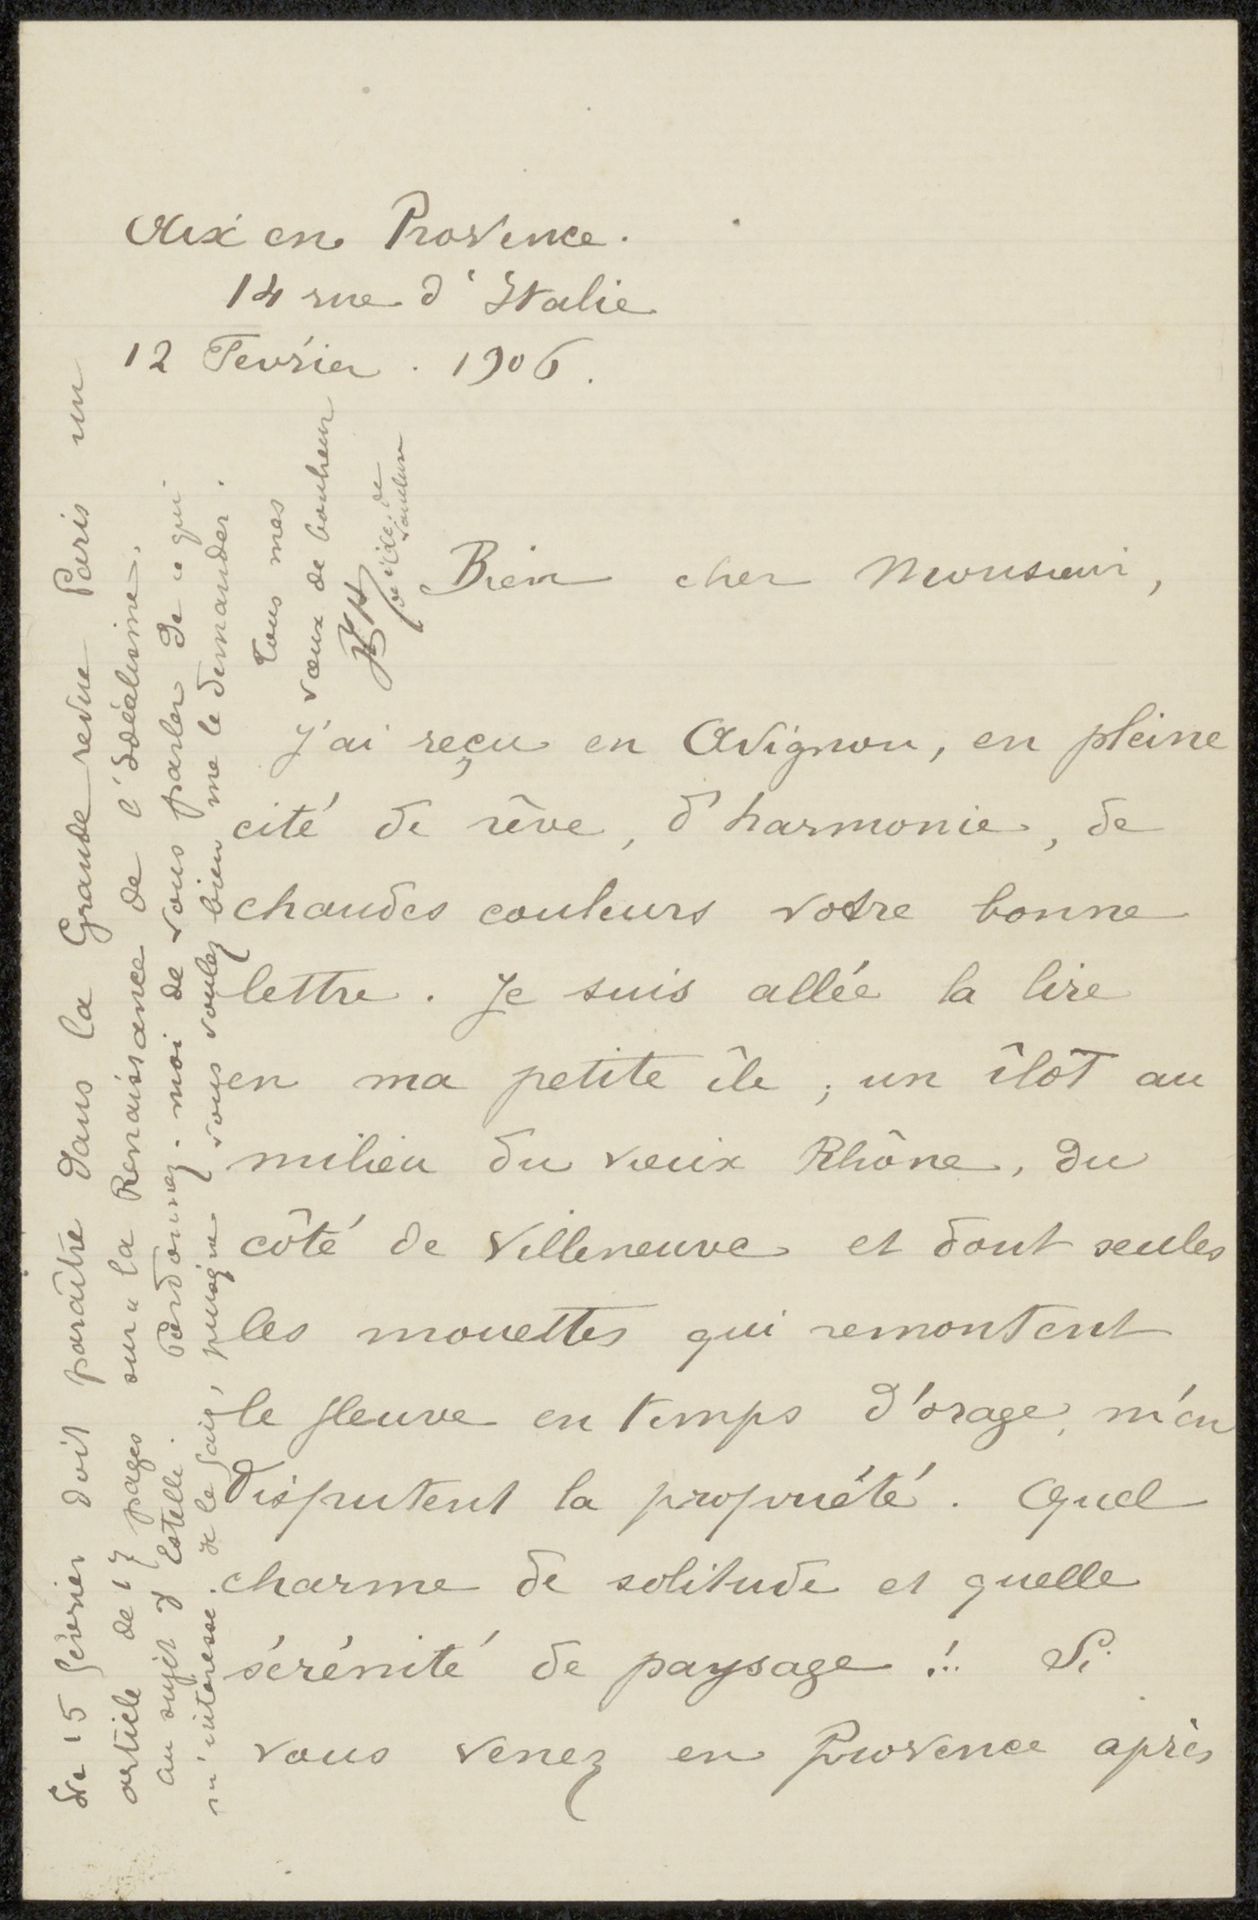 Aix en Provence.
14 rue d'Italie
12 Fevrier. 1906.
Bien cher Monsieur,
J'ai reçu en Avignon, en pleine
cité de rêve, d'harmonie, de
chaudes couleurs votre bonne
lettre. Je suis allée la lire
en ma petite île ; un îlôt au
milieu du vieux Rhône, du
côté de Villeneuve et dont seules
les mouettes qui remontent
le fleuve en temps d'orage, m'en
disputent la propriété. Quel
charme de solitude et quelle
sérénité de paysage !.. Si
vous venez en Provence après
Le 15 février doit paraître dans la Grande revue Paris un
article de 17 pages sur la Renaissance de l'Idéalisme.
au sujet d'Estelle. Pardonnez-moi de vous parler de ce qui
m'intéresse. Je le fais, puisque vous voulez bien me le demander.
Tous mes
vœux de bonheur
de